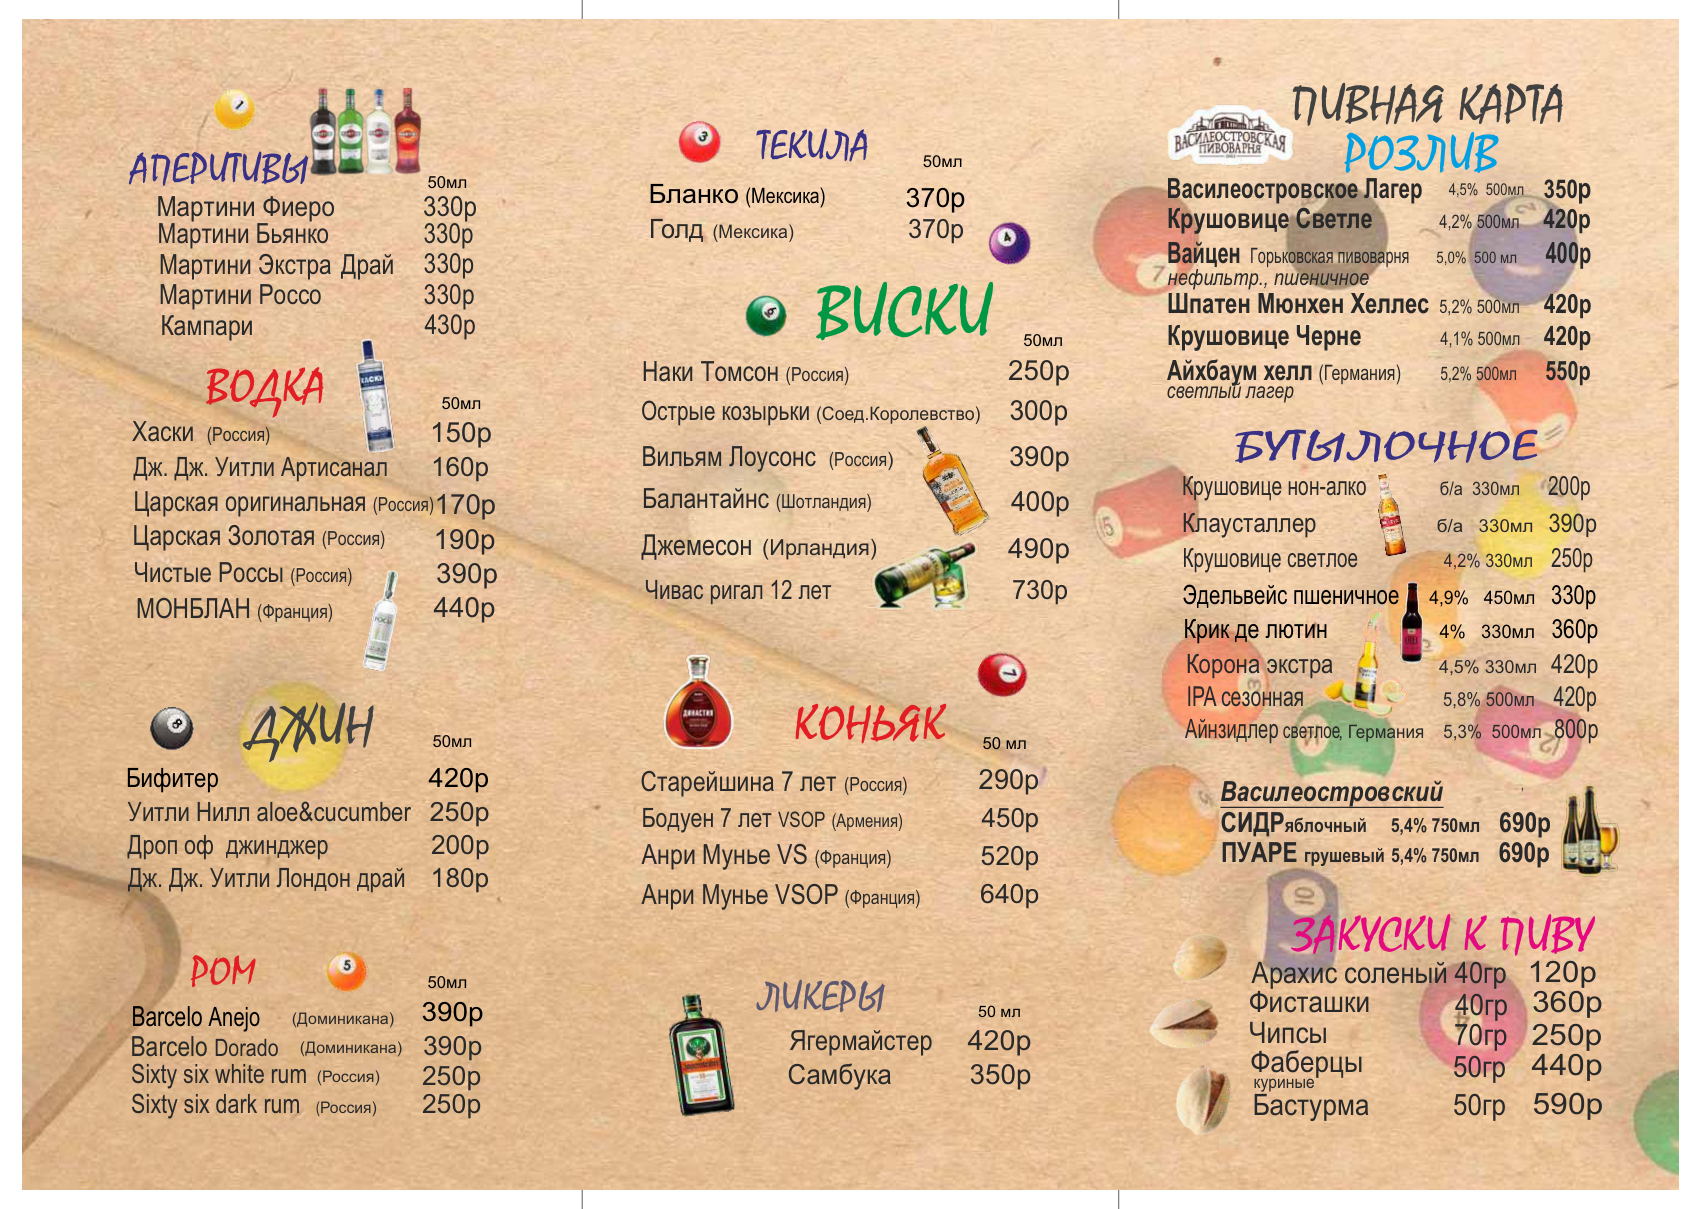 АПЕРИТИВЫ
50мл
Мартини Фиеро 330р
Мартини Бьянко 330р
Мартини Экстра Драй 330р
Мартини Россо 330р
Кампари 430р
ВОДКА
50мл
Хаски (Россия) 150р
Дж. Дж. Уитли Артисанал 160р
Царская оригинальная (Россия) 170р
Царская Золотая (Россия) 190р
Чистые Россы (Россия) 390р
МОНБЛАН (Франция) 440р
ДЖИН
50мл
Бифитер 420р
Уитли Нилл aloe&cucumber 250р
Дроп оф джинджер 200р
Дж. Дж. Уитли Лондон драй 180р
РОМ
50мл
Barcelo Anejo (Доминикана) 390р
Barcelo Dorado (Доминикана) 390р
Sixty six white rum (Россия) 250р
Sixty six dark rum (Россия) 250р
ТЕКИЛА
50мл
Бланко (Мексика) 370р
Голд (Мексика) 370р
ВИСКИ
50мл
Наки Томсон (Россия) 250р
Острые козырьки (Соед.Королевство) 300р
Вильям Лоусонс (Россия) 390р
Балантайнс (Шотландия) 400р
Джемесон (Ирландия) 490р
Чивас ригал 12 лет 730р
КОНЬЯК
50 мл
Старейшина 7 лет (Россия) 290р
Бодуен 7 лет VSOP (Армения) 450р
Анри Мунье VS (Франция) 520р
Анри Мунье VSOP (Франция) 640р
ЛИКЕРЫ
50 мл
Ягермайстер 420р
Самбука 350р
ПИВНАЯ КАРТА
ВАСИЛЕОСТРОВСКАЯ
ПИВОВАРНЯ
РОЗЛИВ
Василеостровское Лагер 4,5% 500мл 350р
Крушовице Светле 4,2% 500мл 420р
Вайцен Горьковская пивоварня 5,0% 500 мл 400р
нефильтр., пшеничное
Шпатен Мюнхен Хеллес 5,2% 500мл 420р
Крушовице Черне 4,1% 500мл 420р
Айхбаум хелл (Германия) 5,2% 500мл 550р
светлый лагер
БУТЫЛОЧНОЕ
Крушовице нон-алко б/а 330мл 200р
Клаусталлер б/а 330мл 390р
Крушовице светлое 4,2% 330мл 250р
Эдельвейс пшеничное 4,9% 450мл 330р
Крик де лютин 4% 330мл 360р
Корона экстра 4,5% 330мл 420р
IPA сезонная 5,8% 500мл 420р
Айнзидлер светлое, Германия 5,3% 500мл 800р
Василеостровский
СИДР яблочный 5,4% 750мл 690р
ПУАРЕ грушевый 5,4% 750мл 690р
ЗАКУСКИ К ПИВУ
Арахис соленый 40гр 120р
Фисташки 40гр 360р
Чипсы 70гр 250р
Фаберцы 50гр 440р
куриные
Бастурма 50гр 590р